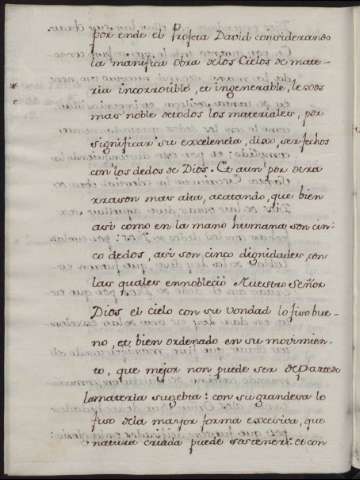 por ende el Profeta David considerando
la manifica obra de los Cielos de mate-
ria incorroible, et ingenerable,
mas noble de todos los materiales, por
significar su excelencia, dixo, ser fechos
con los dedos de Dios. Et aun por otra
rrason mas alta, acatando, que bien
asi como en la mano humana son cin-
co dedos, asi son cinco dignidades, con
las quales ennobleció Nuestro Señor
Dios el cielo con su vondad lo fiso bue-
no, et bien ordenado en su movimien-
to, que mejor non puede ser de parte de
la materia sugebta: con su grandeza lo
fiso de la mayor forma excesiva, que
natura criada puede sostener: et con